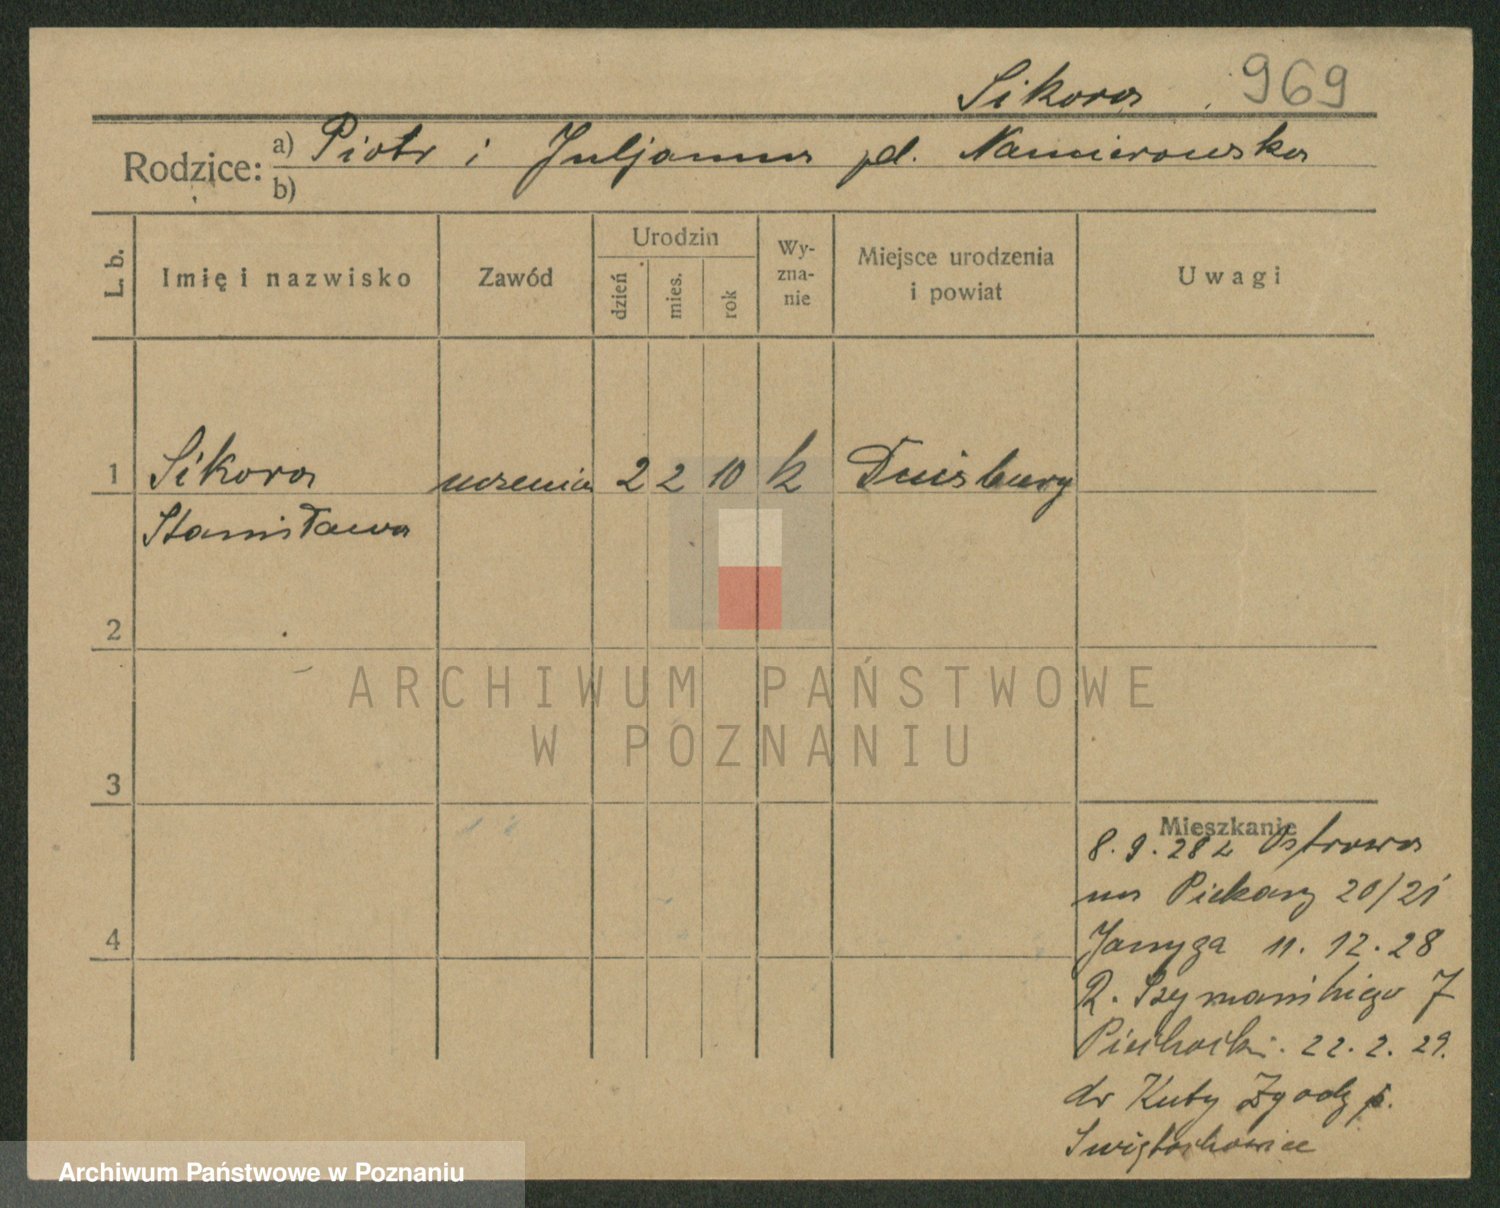 Sikora 969
Rodzice: a) Piotr i Juljanna pd. Namierowska
b)
L. b.
Imię i nazwisko
Zawód
Urodzin
dzień
mies.
rok
Wy-
zna-
nie
Miejsce urodzenia
i powiat
Uwagi
1 Sikora uczenica 2 2 10 k Duisburg
Stanisława
2
3
4
Mieszkanie
8.9.28 z Ostrowa
na Piekary 20/21
11.12.28
R. Szymańskiego 7
Piechocki. 22.2.29.
do Kuty Zgody p.
Świętochowice
ARCHIWUM PAŃSTWOWE
W POZNANIU
Archiwum Państwowe w Poznaniu